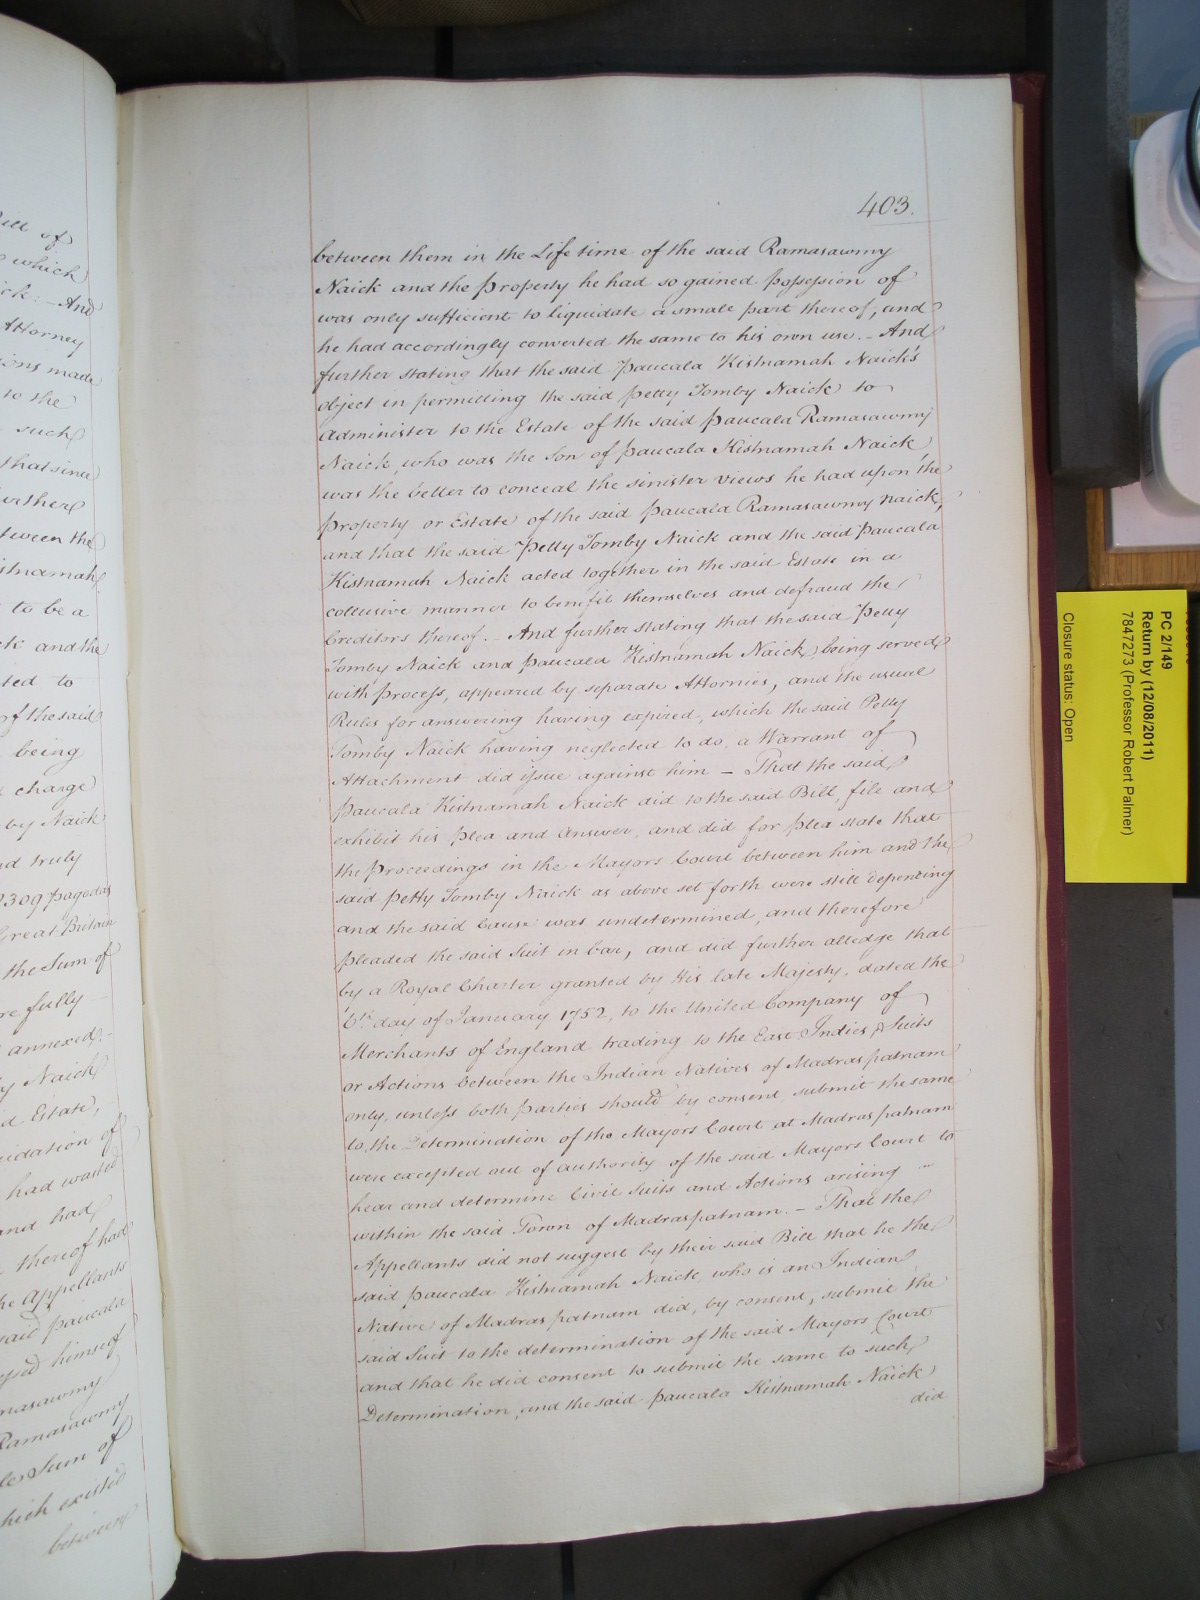 403.
between them in the Life time of the said Ramasawmy
Naick and the property he had so gained possession of
was only sufficient to liquidate a small part thereof, and
he had accordingly converted the same to his own use. - And
further stating that the said Paucala Kistnamah Naick's
object in permitting the said Petty Tomby Naick to
administer to the Estate of the said Paucala Ramasawmy
Naick, who was the Son of Paucala Kistnamah Naick,
was the better to conceal the sinister views he had upon the
property or Estate of the said Paucala Ramasawmy Naick,
and that the said Petty Tomby Naick and the said Paucala
Kistnamah Naick acted together in the said Estate in a
collusive manner to benefit themselves and defraud the
Creditors thereof. - And further stating that the said Petty
Tomby Naick and Paucala Kistnamah Naick, being served
with process, appeared by separate Attornies, and the usual
Rules for answering having expired, which the said Petty
Tomby Naick having neglected to do, a Warrant of
Attachment did issue against him - That the said
Paucala Kistnamah Naick did to the said Bill, file and
exhibit his plea and answer, and did for plea state that
the Proceedings in the Mayors Court between him and the
said Petty Tomby Naick as above set forth were still depending
and the said Cause was undetermined, and therefore
pleaded the said Suit in bar, and did further alledge that
by a Royal Charter granted by His late Majesty, dated the
6th day of January 1752, to the United Company of
Merchants of England trading to the East Indies, Suits
or Actions between the Indian Natives of Madraspatnam
only, unless both parties should by consent, submit the same
to the Determination of the Mayors Court at Madraspatnam
were excepted out of authority of the said Mayors Court to
hear and determine Civil Suits and Actions arising
within the said Town of Madraspatnam. - That the
Appellants did not suggest by their said Bill that he the
said Paucala Kistnamah Naick, who is an Indian
Native of Madraspatnam did, by consent, submit the
said Suit to the determination of the said Mayors Court
and that he did consent to submit the same to such
Determination, and the said Paucala Kistnamah Naick
did
of
which
ick: - And
Attorney
made
to the
such
that since
further
between the
to be a
and the
to
of the said
being
charge
by Naick
truly
2309 pagodas
Great Britain
the Sum of
fully
annexed. -
Naick
Estate,
of
had wasted
and had
thereof had
the Appellants
said Paucala
himself
Ramasawmy
Sum of
which existed
between
PC 2/149
Return by (12/08/2011)
7847273 (Professor Robert Palmer)
Closure status: Open